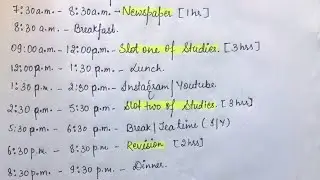 7:30a.m. - 8:30a.m. - Newspaper [1hr]
8:30 a.m. - Breakfast.
09:00a.m. - 12:00p.m. - Slot one of Studies. [3hrs]
12:00p.m. - 1:30p.m. - Lunch.
1:30 p.m. - 2:30p.m. - Instagram/Youtube.
2:30 p.m. - 5:30 p.m. - Slot two of Studies. [3hrs]
5:30 p.m - 6:30p.m. - Break/Tea time (I/Y)
6:30 p.m. - 8:30p.m. - Revision [2hrs]
8:30p.m. - 9:30 p.m. - Dinner.